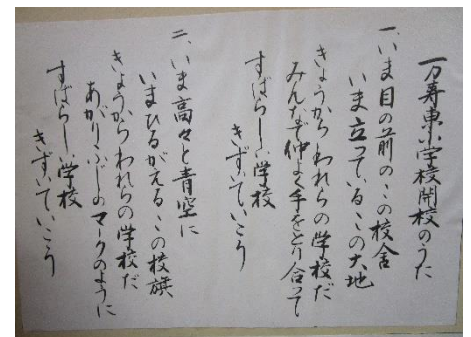 万寿東小学校開校のうた
一、いま目の前のこの校舎
いま立っているこの大地
きょうからわれらの学校だ
みんなで仲よく手をとり合って
すばらしい学校
きずいていこう
二、いま高々と青空に
いまひるがえるこの校旗
きょうからわれらの学校だ
あがりふじのマークのように
すばらしい学校
きずいていこう